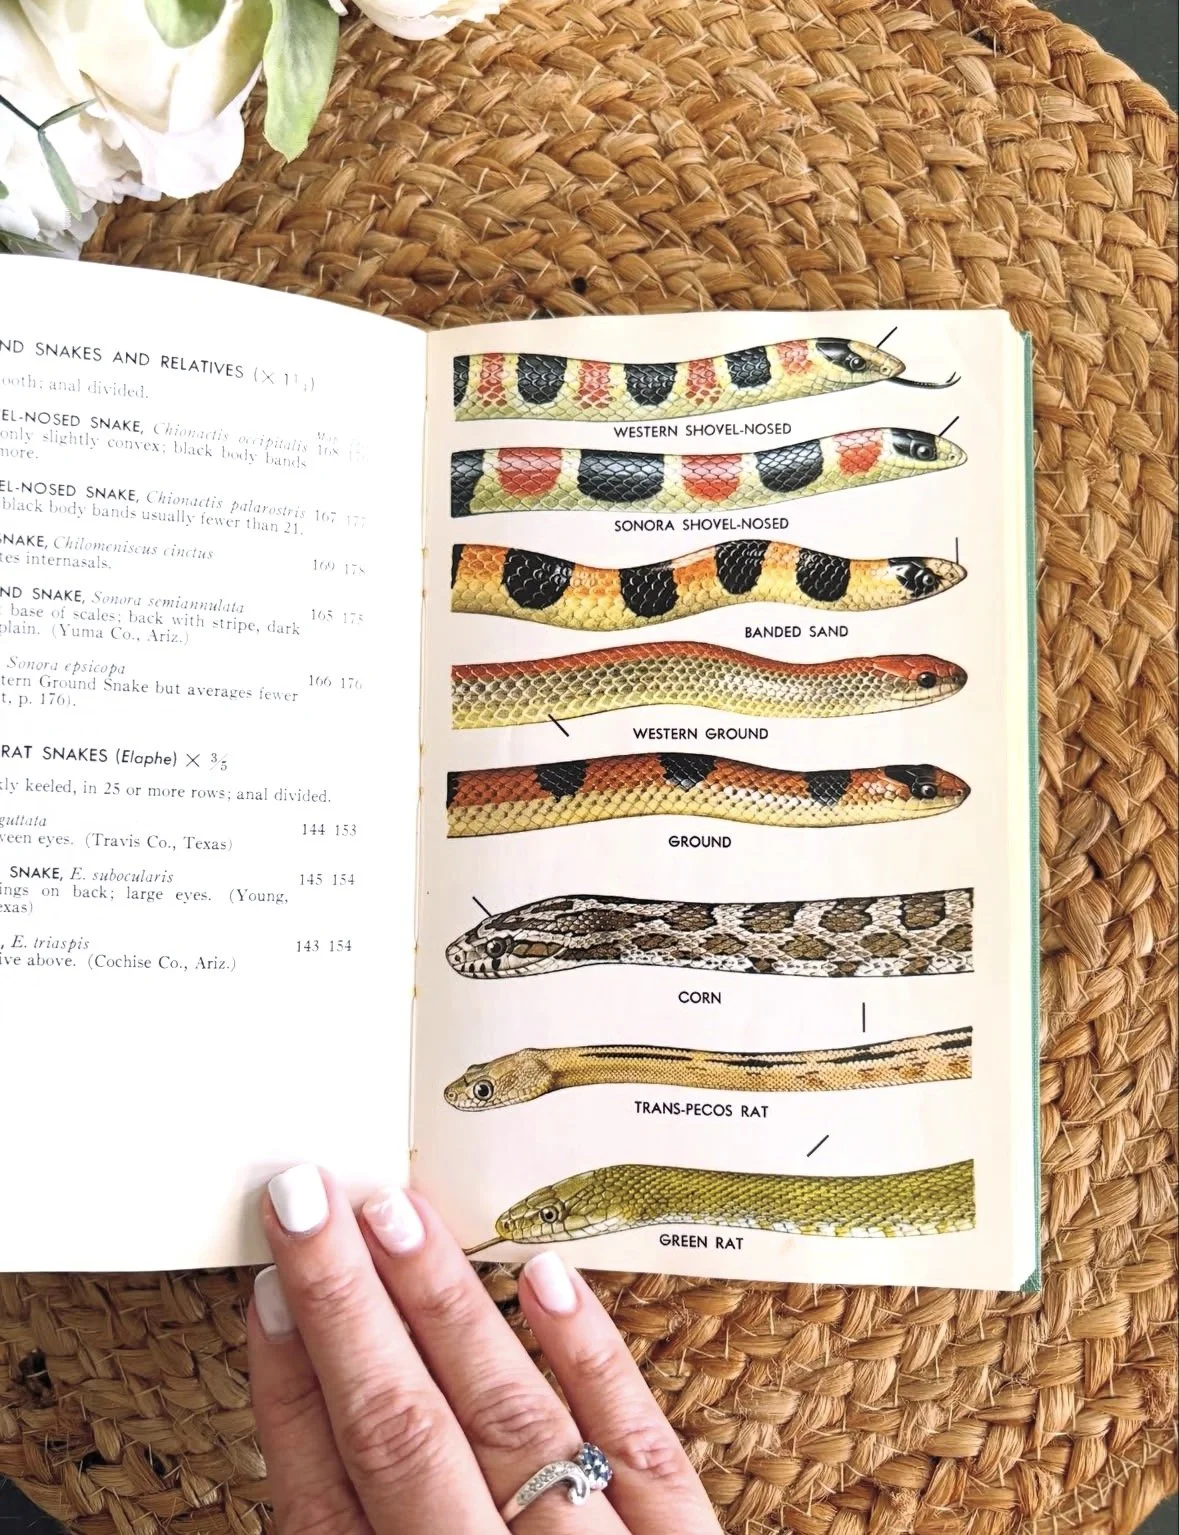 ND SNAKES AND RELATIVES (× 1¼)
ooth; anal divided.
EL-NOSED SNAKE, Chionactis occipitalis 168
only slightly convex; black body bands
more.
EL-NOSED SNAKE, Chionactis palarostris 167 177
black body bands usually fewer than 21.
NAKE, Chilomeniscus cinctus 169 178
tes internasals.
ND SNAKE, Sonora semiannulata 165 175
base of scales; back with stripe, dark
plain. (Yuma Co., Ariz.)
Sonora epsicopa 166 176
tern Ground Snake but averages fewer
t, p. 176).
RAT SNAKES (Elaphe) × 3/5
kly keeled, in 25 or more rows; anal divided.
guttata 144 153
ween eyes. (Travis Co., Texas)
SNAKE, E. subocularis 145 154
ings on back; large eyes. (Young,
exas)
, E. triaspis 143 154
ive above. (Cochise Co., Ariz.)
WESTERN SHOVEL-NOSED
SONORA SHOVEL-NOSED
BANDED SAND
WESTERN GROUND
GROUND
CORN
TRANS-PECOS RAT
GREEN RAT